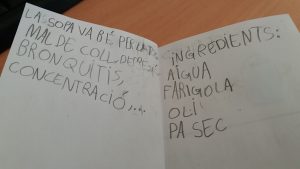 LA SOPA VA BÉ PER
MAL DE COLL, DEPRESSIÓ
BRONQUITIS,
CONCENTRACIÓ...
INGREDIENTS:
AIGUA
FARIGOLA
OLI
PA SEC